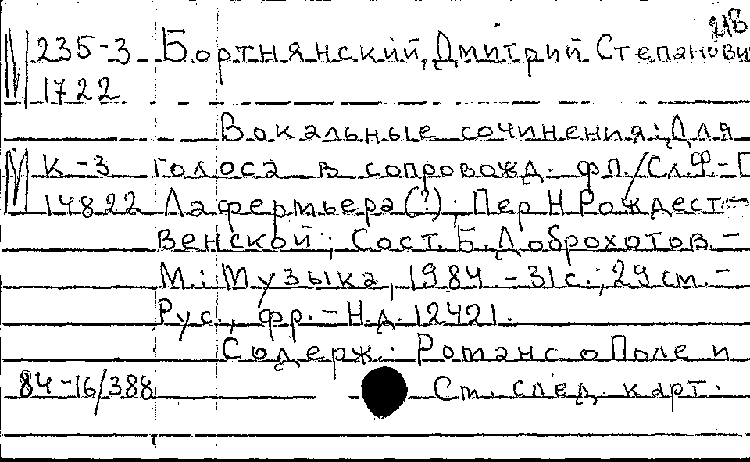 218
М 235-3 Бортнянский, Дмитрий Степанови
1722
Вокальные сочинения: Для
М К-3 голоса в сопровожд. фп./Сл. Ф.-Г
14822 Лафермьера(?); Пер Н Рождест-
венской; Сост. Б. Доброхотов. -
М.: Музыка, 1984. - 31 с.; 29 см. -
Рус., фр. - Н.д. 12421.
Содерж.: Романс о Поле и
84-16/388 См. след. карт.